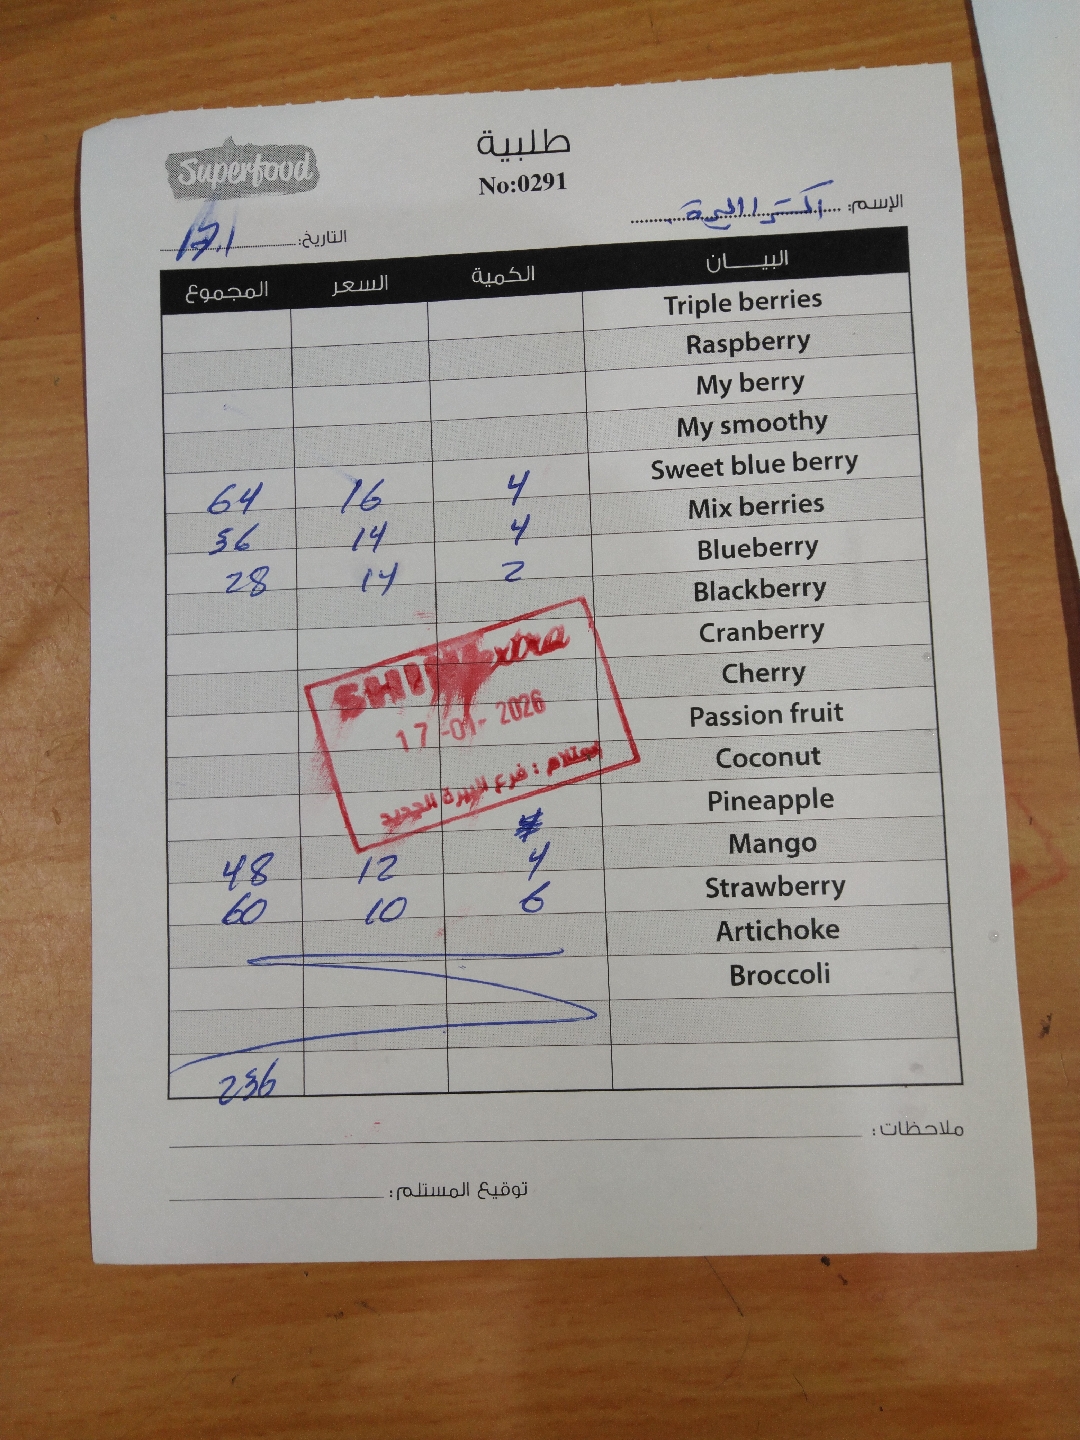 Superfood
طلبية
No:0291
الإسم: اكسترا البيرة
التاريخ: 17.1
البيـــان الكمية السعر المجموع
Triple berries
Raspberry
My berry
My smoothy
Sweet blue berry 4 16 64
Mix berries 4 14 56
Blueberry 2 14 28
Blackberry
Cranberry
Cherry
Passion fruit
Coconut
Pineapple
Mango 4 12 48
Strawberry 6 10 60
Artichoke
Broccoli
236
extra
17 -01- 2026
فرع البيرة الجديد
ملاحظات:
توقيع المستلم: